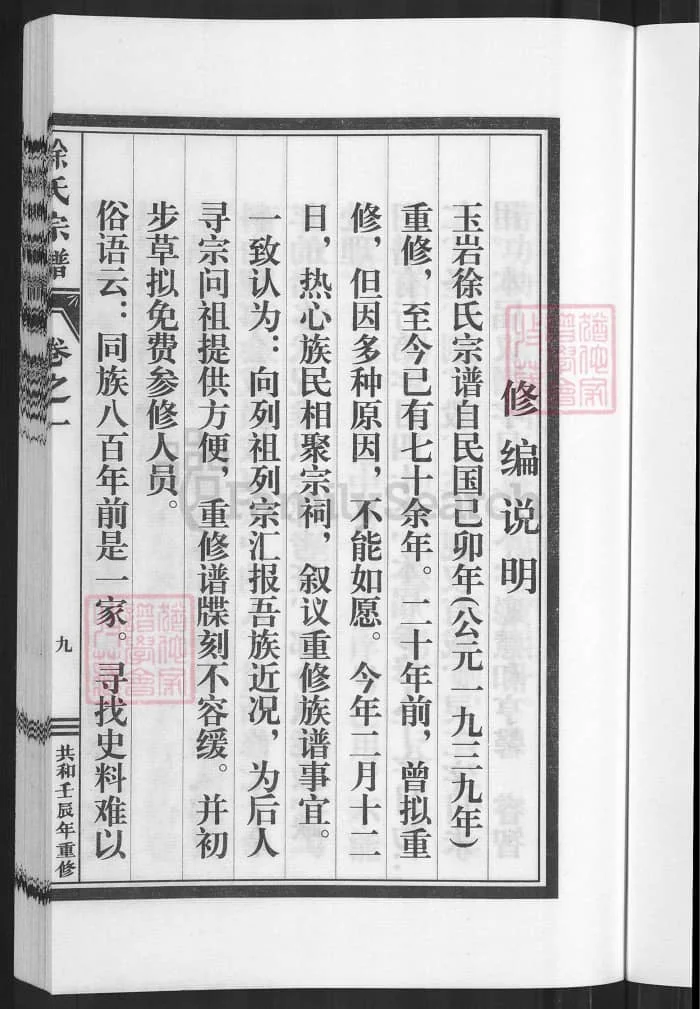 修编说明
玉岩徐氏宗谱自民国己卯年(公元一九三九年)
重修，至今已有七十余年。二十年前，曾拟重
修，但因多种原因，不能如愿。今年二月十二
日，热心族民相聚宗祠，叙议重修族谱事宜。
一致认为：向列祖列宗汇报吾族近况，为后人
寻宗问祖提供方便，重修谱牒刻不容缓。并初
步草拟免费参修人员。
俗语云：同族八百年前是一家。寻找史料难以
徐氏宗谱
卷之一
九
共和壬辰年重修
FamilySearch